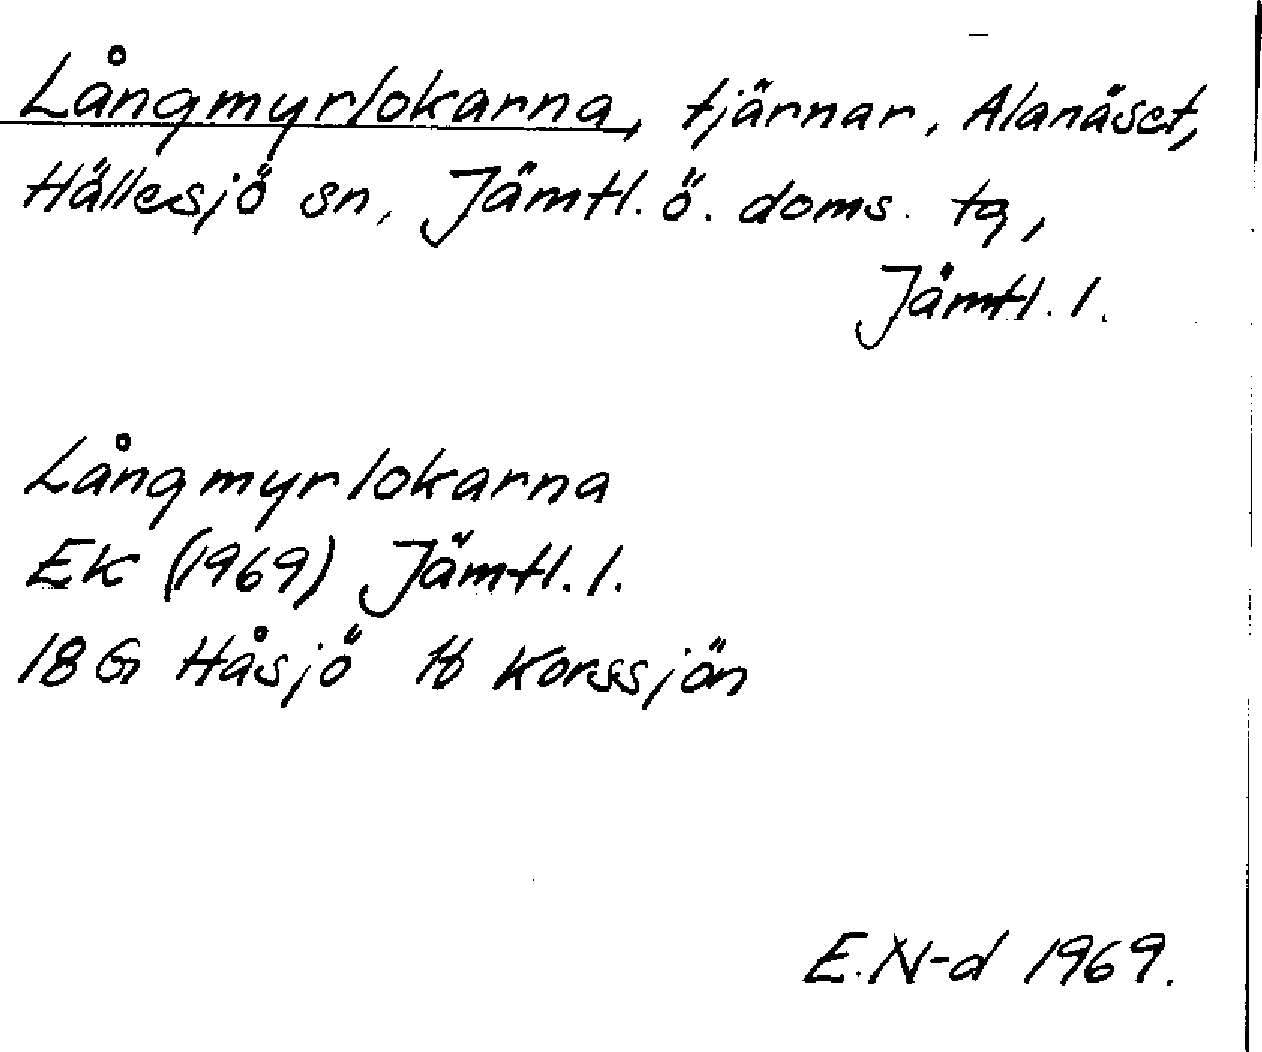 Långmyrlokarna, tjärnar, Alanäset,
Hällesjö sn, Jämtl. ö. doms. tg,
Jämtl. l.
Långmyrlokarna
Ek (1969) Jämtl. l.
18 G Håsjö Korssjön
E. N-d 1969.